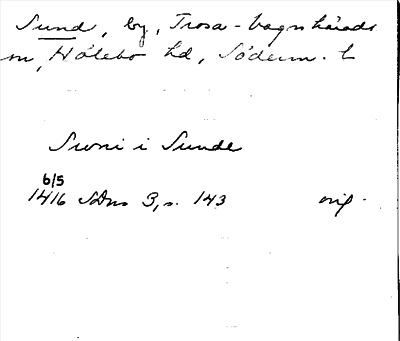 Sund, by, Trosa-Vagnhärads
sn, Hölebo hd, Söderm. l
Swni i Sunde
6/5
1416 SDns 3, s. 143 orig.